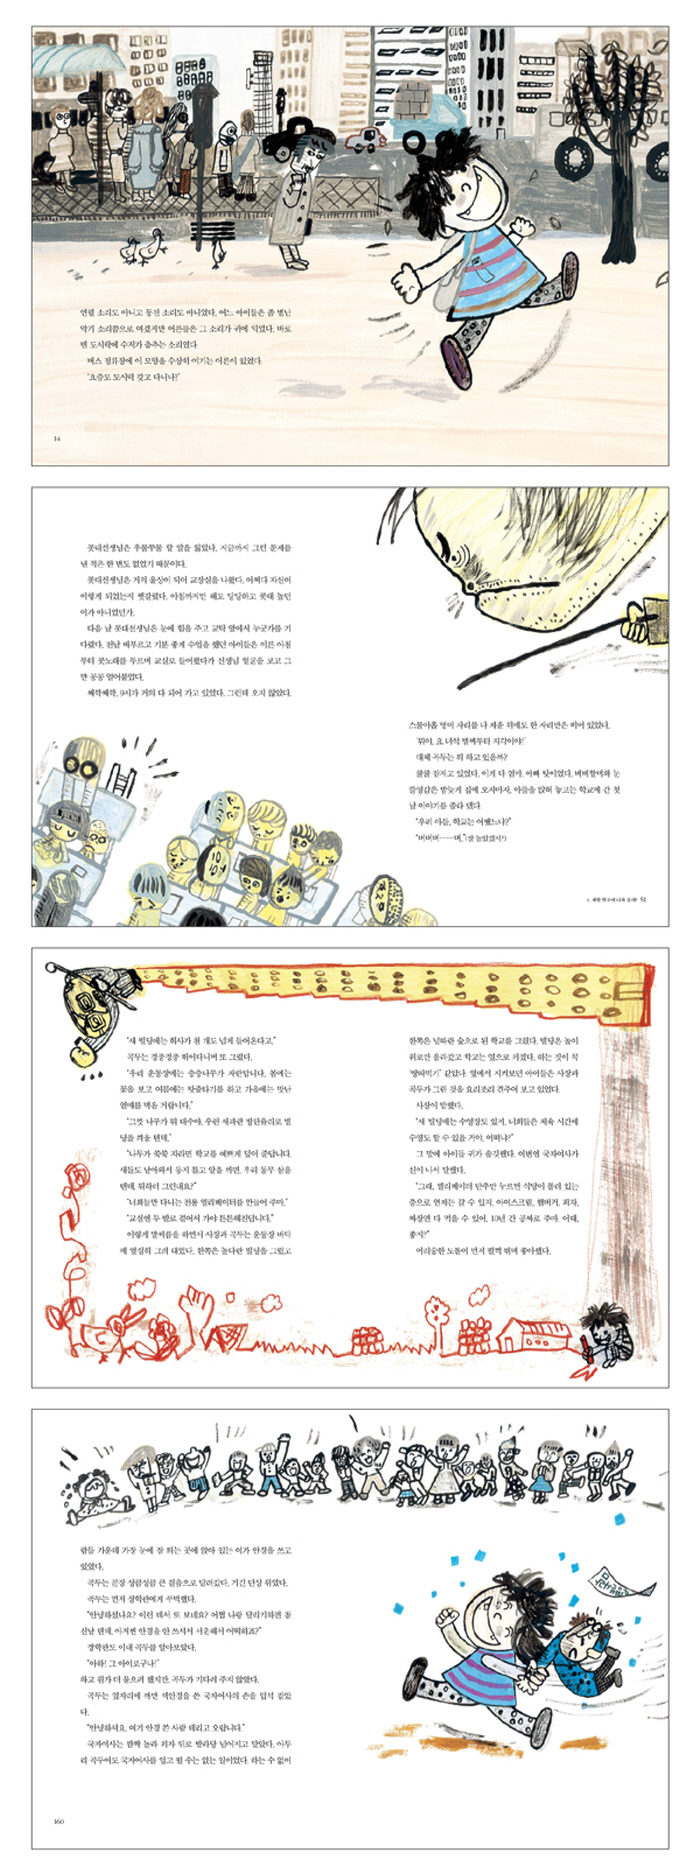 연필 소리도 아니고 동전 소리도 아니었다. 어느 아이들은 좀 별난
악기 소리쯤으로 여겼지만 어른들은 그 소리가 귀에 익었다. 바로
빈 도시락에 수저가 춤추는 소리였다.
버스 정류장에 이 모양을 수상히 여기는 어른이 있었다.
'요즘도 도시락 갖고 다니나?'
14
꼿대선생님은 우물쭈물 할 말을 잃었다. 지금까지 그런 문제를
낸 적은 한 번도 없었기 때문이다.
꼿대선생님은 거의 울상이 되어 교장실을 나왔다. 어쩌다 자신이
이렇게 되었는지 헷갈렸다. 아침까지만 해도 당당하고 콧대 높던
이가 아니었던가.
다음 날 꼿대선생님은 눈에 힘을 주고 교탁 옆에서 누군가를 기
다렸다. 전날 배부르고 기분 좋게 수업을 했던 아이들은 이른 아침
부터 콧노래를 부르며 교실로 들어왔다가 선생님 얼굴을 보고 그
만 꽁꽁 얼어붙었다.
째깍째깍, 9시가 거의 다 되어 가고 있었다. 그런데 오지 않았다.
스물아홉 명이 자리를 다 채운 뒤에도 한 자리만은 비어 있었다.
'뭐야, 요 녀석 벌써부터 지각이야!'
대체 곡두는 뭐 하고 있을까?
쿨쿨 잠자고 있었다. 이게 다 엄마, 아빠 탓이었다. 버버할머와 눈
날 이야기를 졸라 댔다.
"우리 아들, 학교는 어땠느냐?"
51
"새 빌딩에는 회사가 천 개도 넘게 들어온다고."
곡두는 경중경중 뛰어다니며 또 그렸다.
"우리 운동장에는 층층나무가 자란답니다. 봄에는
꽃을 보고 여름에는 탓줄타기를 하고 가을에는 맛난
열매를 먹을 거랍니다."
"그깟 나무가 뭐 대수야. 우린 새파란 방탄유리로 빌
딩을 씌울 텐데."
"나무가 쑥쑥 자라면 학교를 예쁘게 덮어 준답니다.
새들도 날아와서 둥지 틀고 알을 까면, 우리 동무 삼을
텐데, 뭐하러 그런대요?"
"너희들만 다니는 전용 엘리베이터를 만들어 주마."
"교실엔 두 발로 걸어서 가야 튼튼해진답니다."
이렇게 말씨름을 하면서 사장과 곡두는 운동장 바닥
에 열심히 그려 대었다. 한쪽은 높다란 빌딩을 그렸고
한쪽은 널따란 숲으로 된 학교를 그렸다. 빌딩은 높이
위로만 올라갔고 학교는 옆으로 커졌다. 하는 것이 꼭
'땅따먹기' 같았다. 옆에서 지켜보던 아이들은 사장과
곡두가 그린 것을 요리조리 견주어 보고 있었다.
사장이 말했다.
"새 빌딩에는 수영장도 있지. 너희들은 체육 시간에
수영도 할 수 있을 거야, 어떠냐?"
그 말에 아이들 귀가 솔깃했다. 이번엔 국자여사가
신이 나서 말했다.
"그래, 엘리베이터 단추만 누르면 식당이 몰려 있는
층으로 언제든 갈 수 있지. 아이스크림, 햄버거, 피자,
짜장면 다 먹을 수 있어. 10년 간 공짜로 주마. 어때,
좋지?"
어리숭한 도돌이 먼저 펄쩍 뛰며 좋아했다.
람들 가운데 가장 눈에 잘 띄는 곳에 앉아 있는 이가 안경을 쓰고
있었다.
곡두는 곧장 성큼성큼 큰 걸음으로 달려갔다. 거긴 단상 위였다.
곡두는 먼저 장학관에게 꾸벅했다.
"안녕하셨나요? 이런 데서 또 보네요? 어쩜 나랑 달리기하면 좋
신날 텐데, 아저씬 안경을 안 쓰셔서 서운해서 어떡하죠?"
장학관도 이내 곡두를 알아보았다.
"아하! 그 아이로구나!"
하고 뭔가 더 물으려 했지만, 곡두가 기다려 주지 않았다.
곡두는 옆자리에 까만 색안경을 쓴 국자여사의 손을 덥석 잡았
다.
"안녕하셔요, 여기 안경 쓴 사람 데리고 오랍니다."
국자여사는 깜짝 놀라 의자 뒤로 발라당 넘어지고 말았다. 아무
리 곡두여도 국자여사를 업고 뛸 수는 없는 일이었다. 하는 수 없이
160